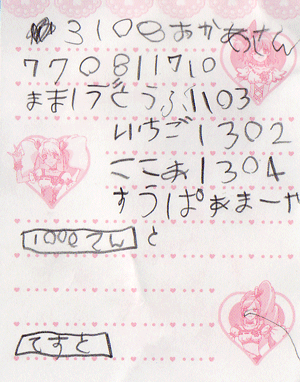 3108おかあさん
770811710
まま1ぞうふ1103
いちご1302
ここあ1304
すうぱあまーや
100てん と
てすと